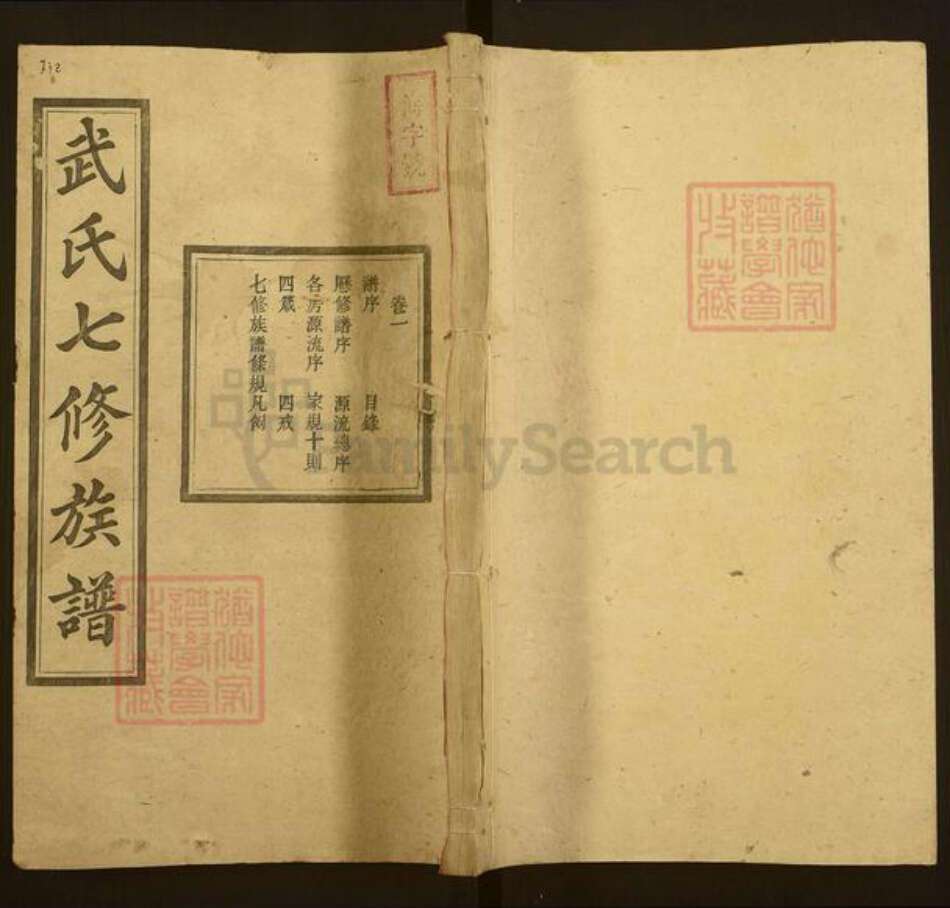 武氏七修族譜
卷一
譜序 目錄
歷修譜序 源流總序
各房源流序 家規十則
四箴 四戒
七修族譜條規凡例
字號
譜學會
收藏
FamilySearch